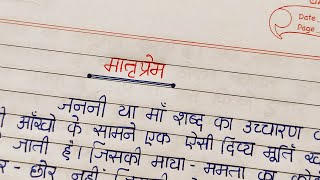 Date
Page
मातृप्रेम
जननी या माँ शब्द का उच्चारण
आँखो के सामने एक ऐसी दिव्य मूर्ति
जाती है। जिसकी माया - ममता का
छोर नहीं